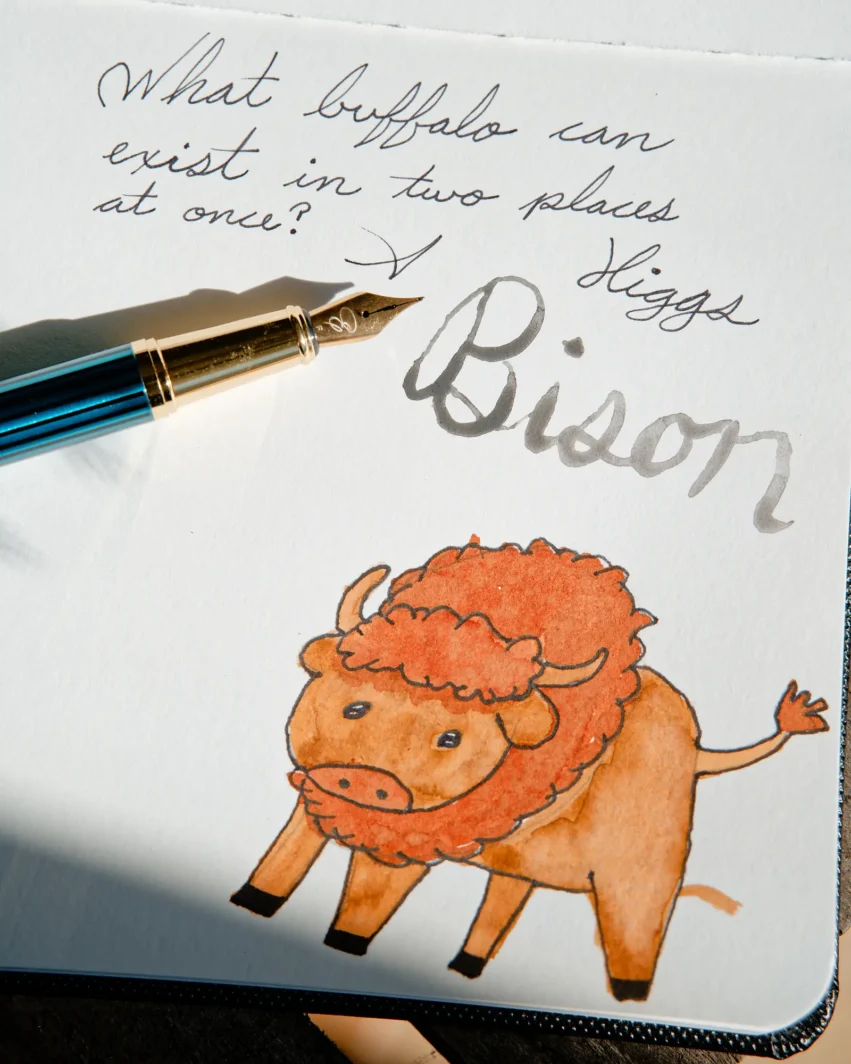 What buffalo can
exist in two places
at once?
A Higgs
Bison